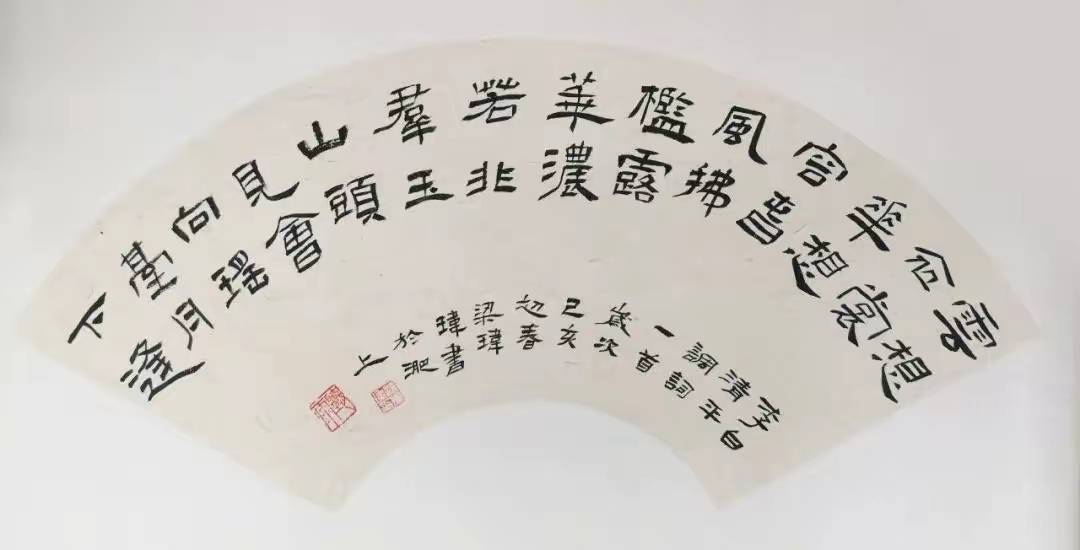 雲想
衣裳
華想
容春
風拂
檻露
華濃
若非
羣玉
山頭
見會
向瑤
臺月
下逢
李白
清平
調詞
一首
歲次
己亥
初春
梁瑋
瑋書
於淝
上